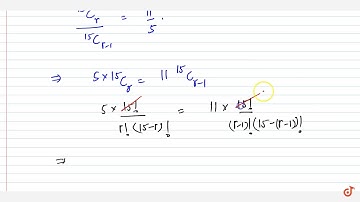 ¹⁵Cᵣ / ¹⁵Cᵣ₋₁ = 11/5 .
⇒ 5 × ¹⁵Cᵣ = 11 ¹⁵Cᵣ₋₁
5 × 15! / r! (15-r)! = 11 × 15! / (r-1)! (15-(r-1))!
⇒